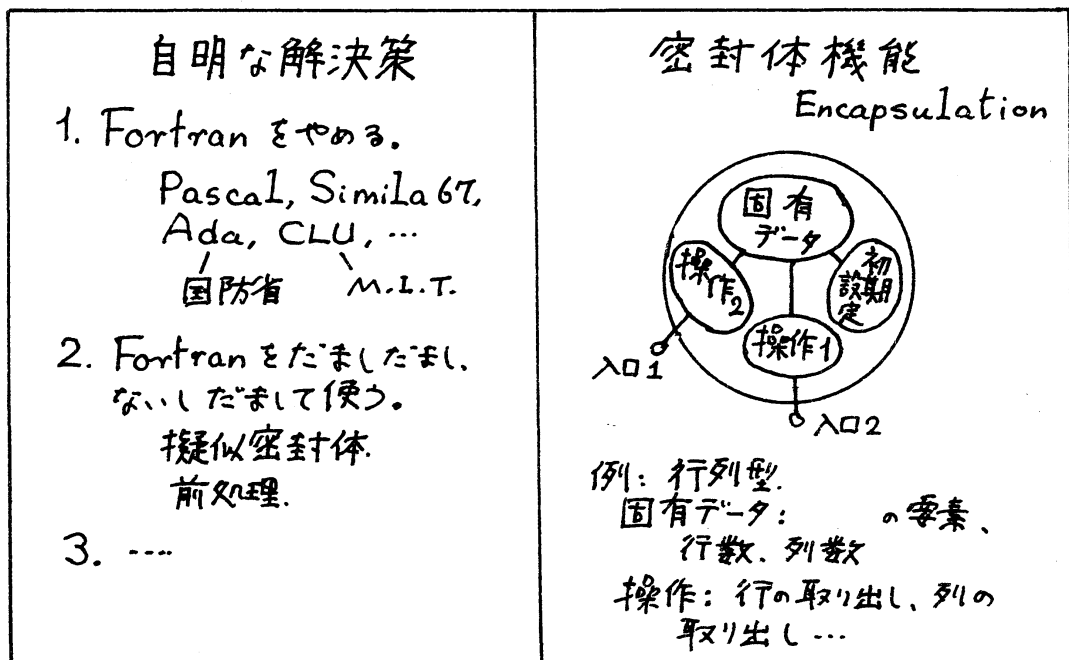 自明な解決策
1. Fortran をやめる.
Pascal, Simila 67,
Ada, CLU, …
国防省 M.I.T.
2. Fortran をだましだまし,
ないしだまして使う。
擬似密封体.
前処理.
3. ....
密封体機能
Encapsulation
固有
データ
操作2
初期
設定
操作1
入口1
入口2
例: 行列型.
固有データ: の要素、
行数、列数
操作: 行の取り出し、列の
取り出し …